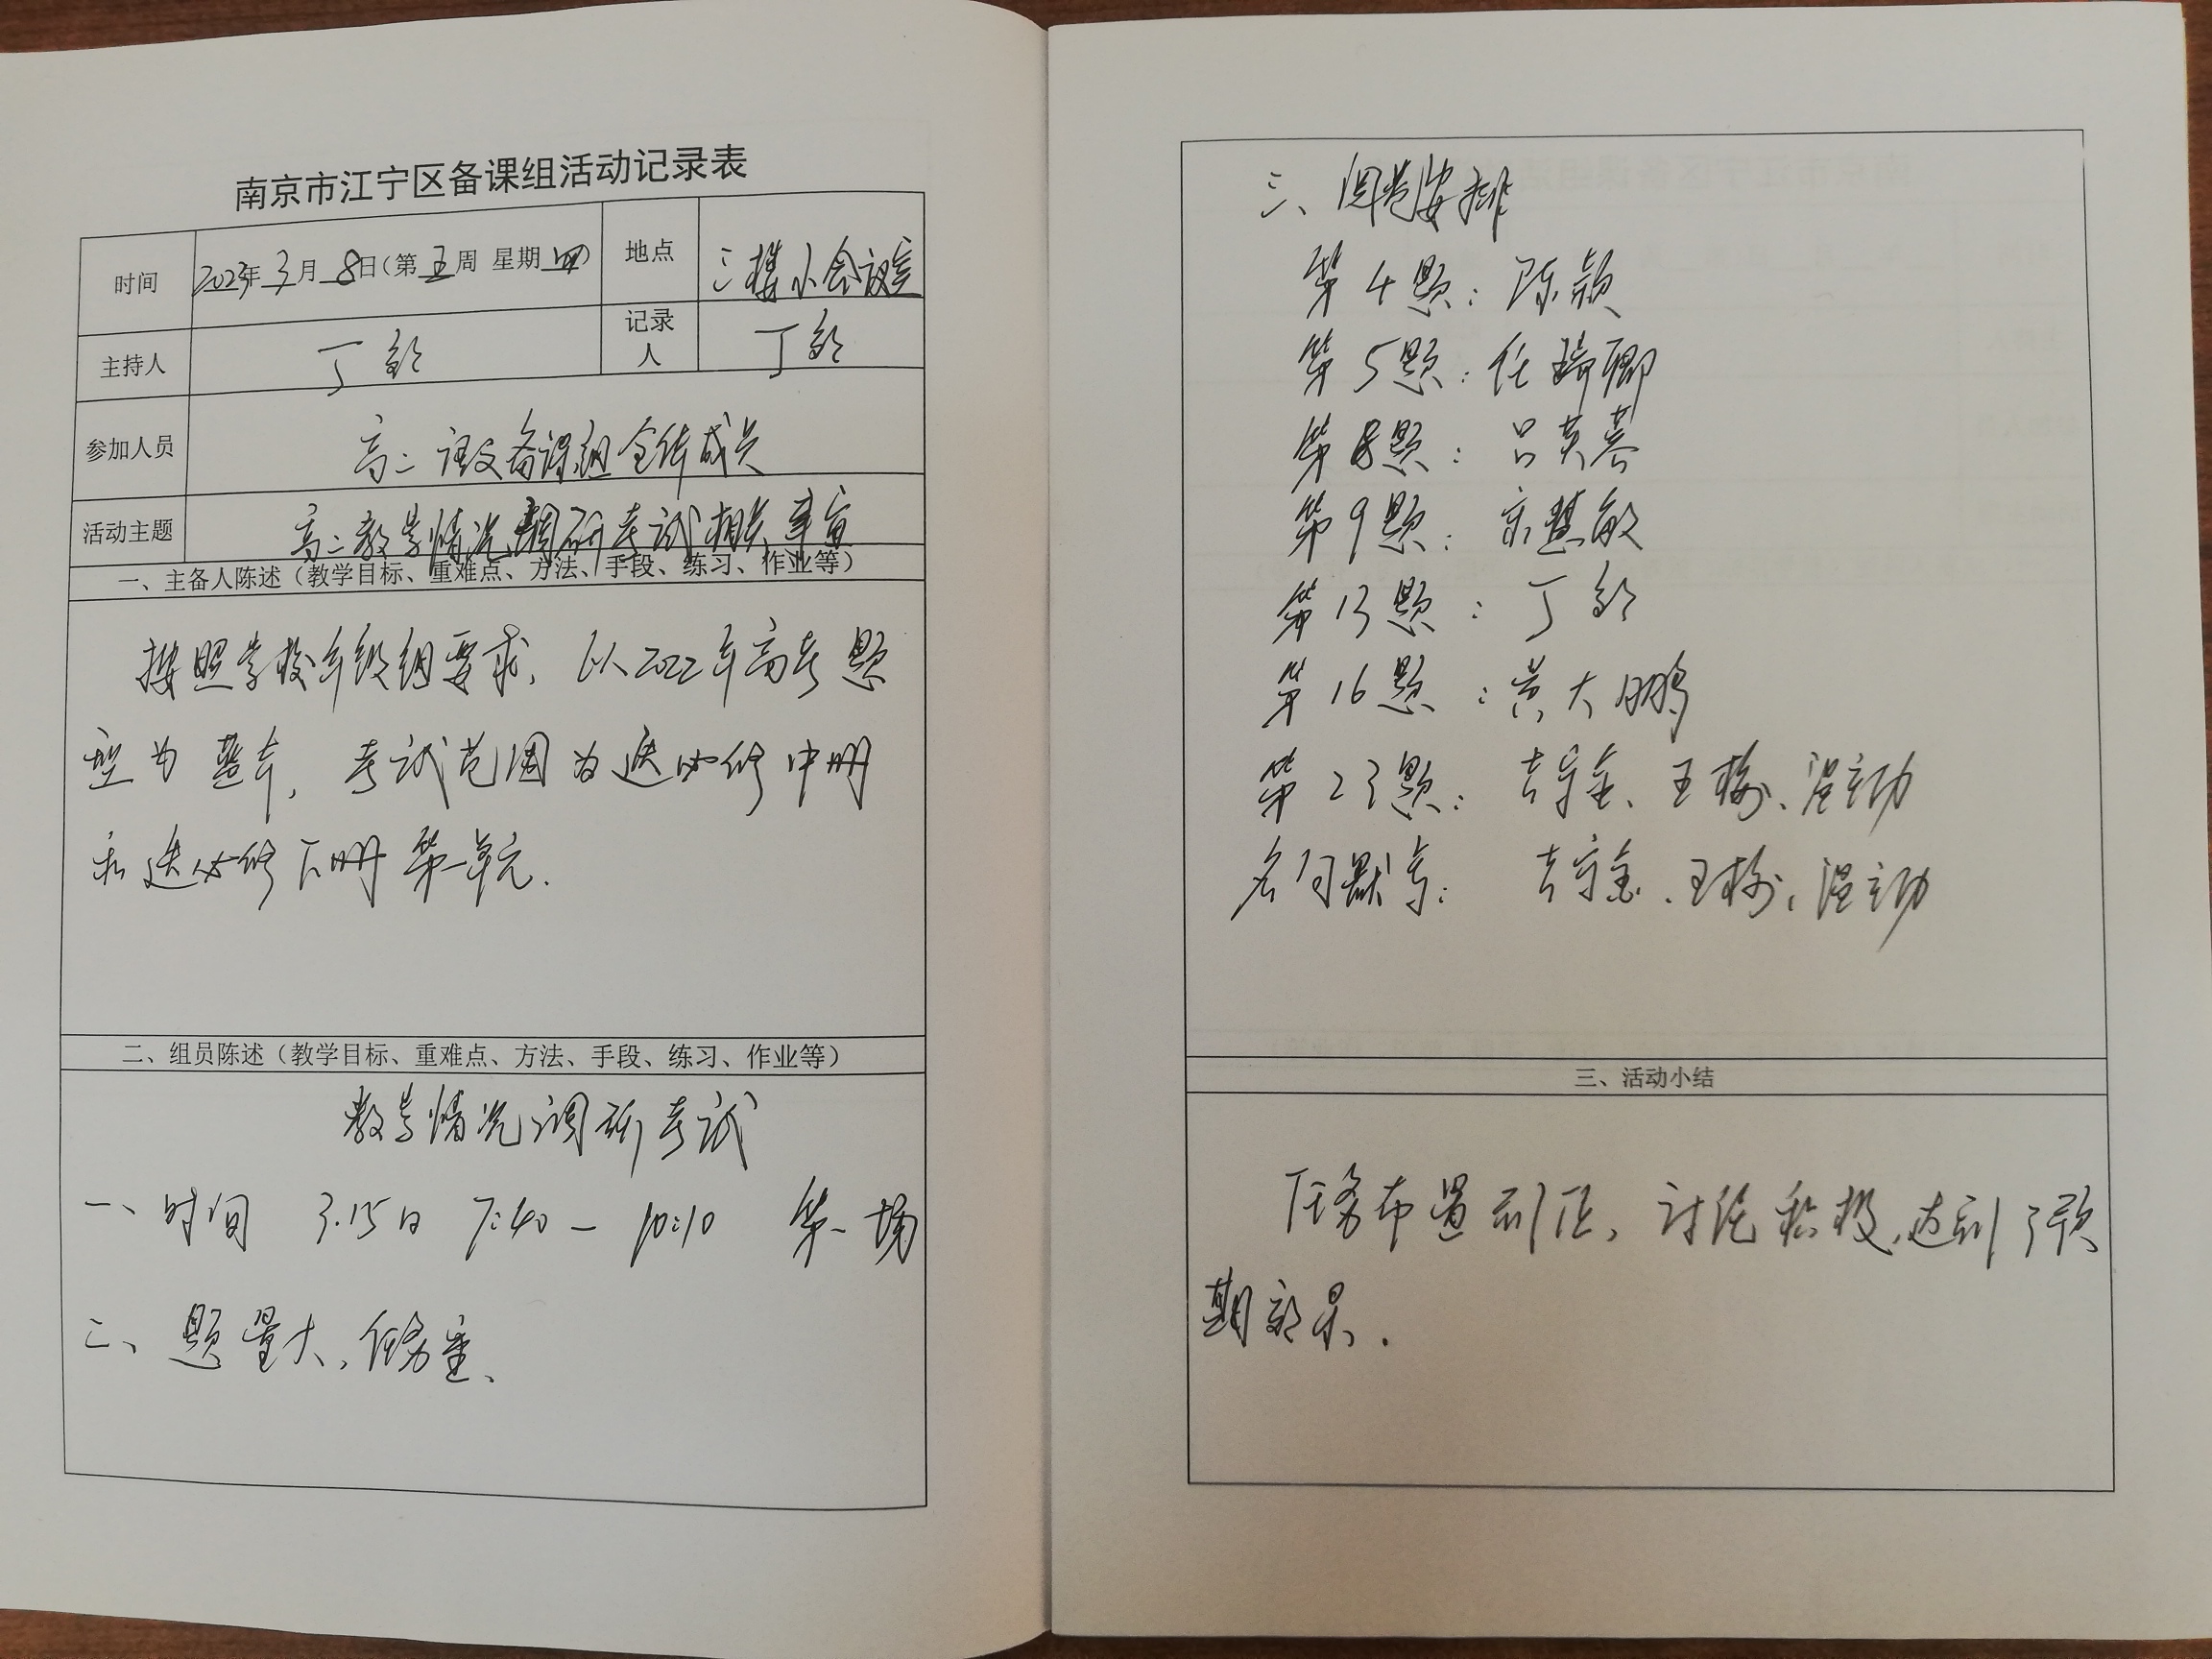 南京市江宁区备课组活动记录表
时间 2023年 3月 8日（第五周 星期四） 地点 三楼小会议室
主持人 丁 记录人 丁
参加人员 高二语文备课组全体成员
活动主题 高二教学情况调研考试相关事宜
一、主备人陈述（教学目标、重难点、方法、手段、练习、作业等）
按照学校年级组要求，以2022年高考题
型为蓝本，考试范围为选必修中册
和选必修下册第一单元.
二、组员陈述（教学目标、重难点、方法、手段、练习、作业等）
教学情况调研考试
一、时间 3.15日 7:40－10:10 第一场
二、题量大，任务重、
三、阅卷安排
第4题：陈颖
第5题：任琦卿
第8题：吕芙蓉
第9题：宗慧敏
第13题：丁
第16题：黄大鹏
第23题：吉守金、王梅、温立功
名句默写：吉守金、王梅、温立功
三、活动小结
任务布置到位，讨论积极，达到了预
期效果.